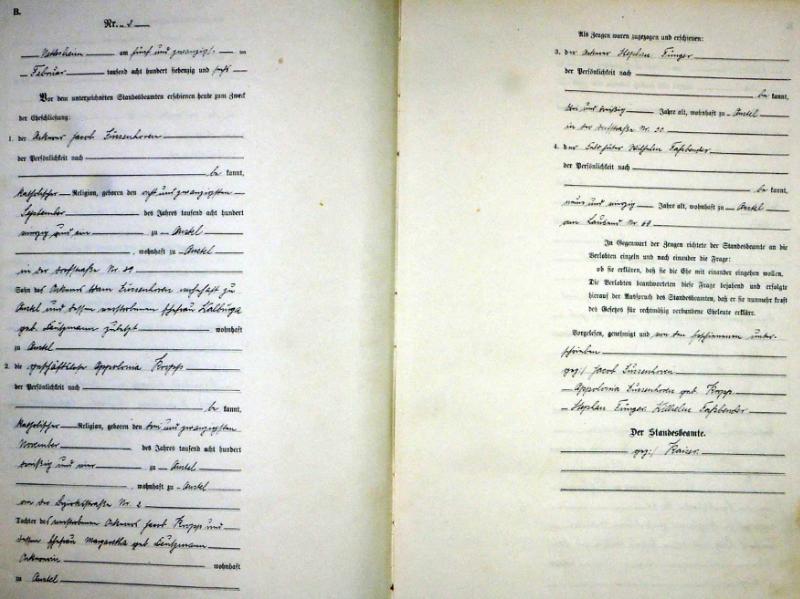 B.
Nr. 2
Nettesheim am fünf und zwanzigsten
Februar tausend acht hundert siebenzig und sechs
Vor dem unterzeichneten Standesbeamten erschienen heute zum Zweck
der Eheschließung:
1. der Ackerer Jacob Lüssenhoven
der Persönlichkeit nach
be kannt,
katholischer Religion, geboren den acht und zwanzigsten
September des Jahres tausend acht hundert
vierzig und ein zu Anstel
, wohnhaft zu Anstel
in der Dorfstraße Nr. 89
Sohn des Ackerers Adam Lüssenhoven wohnhaft zu
Anstel und dessen verstorbenen Ehefrau Walburga
geb. zuletzt wohnhaft
zu Anstel
2. die geschäftslose Appolonia Kropp
der Persönlichkeit nach
be kannt,
katholischer Religion, geboren den drei und zwanzigsten
November des Jahres tausend acht hundert
dreißig und vier zu Anstel
, wohnhaft zu Anstel
an der Bezirksstraße Nr. 2
Tochter des verstorbenen Ackerers Jacob Kropp und
dessen Ehefrau Margaretha geb.
Ackerin wohnhaft
zu Anstel
Als Zeugen waren zugezogen und erschienen:
3. der Ackerer Stephan Fünger
der Persönlichkeit nach
be kannt,
drei und dreißig Jahre alt, wohnhaft zu Anstel
in der Dorfstraße Nr.
4. der Feldhüter Wilhelm Faßbender
der Persönlichkeit nach
be kannt,
neun und vierzig Jahre alt, wohnhaft zu Anstel
am Nr 69
In Gegenwart der Zeugen richtete der Standesbeamte an die
Verlobten einzeln und nach einander die Frage:
ob sie erklären, daß sie die Ehe mit einander eingehen wollen.
Die Verlobten beantworteten diese Frage bejahend und erfolgte
hierauf der Ausspruch des Standesbeamten, daß er sie nunmehr kraft
des Gesetzes für rechtmäßig verbundene Eheleute erkläre.
Vorgelesen, genehmigt und von den Erschienenen unter-
schrieben
gez: Jacob Lüssenhoven
Appolonia Lüssenhoven geb. Kropp
Stephan Fünger Wilhelm Faßbender
Der Standesbeamte.
gez: Kaiser